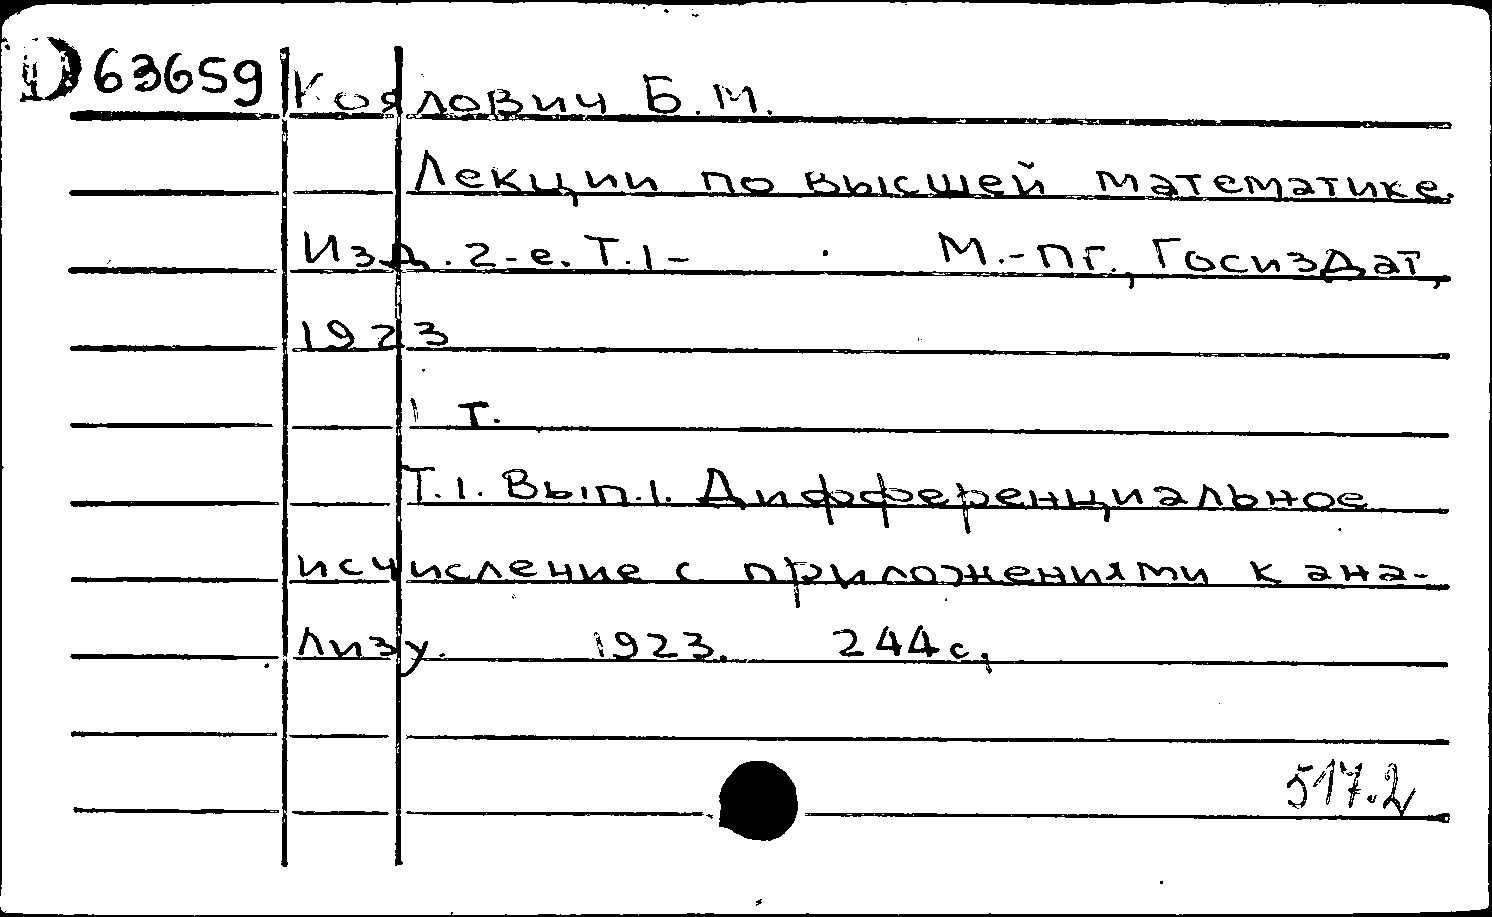 D 63659 Коялович Б.М.
Лекции по высшей математике.
Изд. 2-е. Т.1- . М.-Пг., Госиздат,
1923
1 т.
Т.1. Вып.1. Дифференциальное
исчисление с приложениями к ана-
лизу. 1923. 244с,
517.2